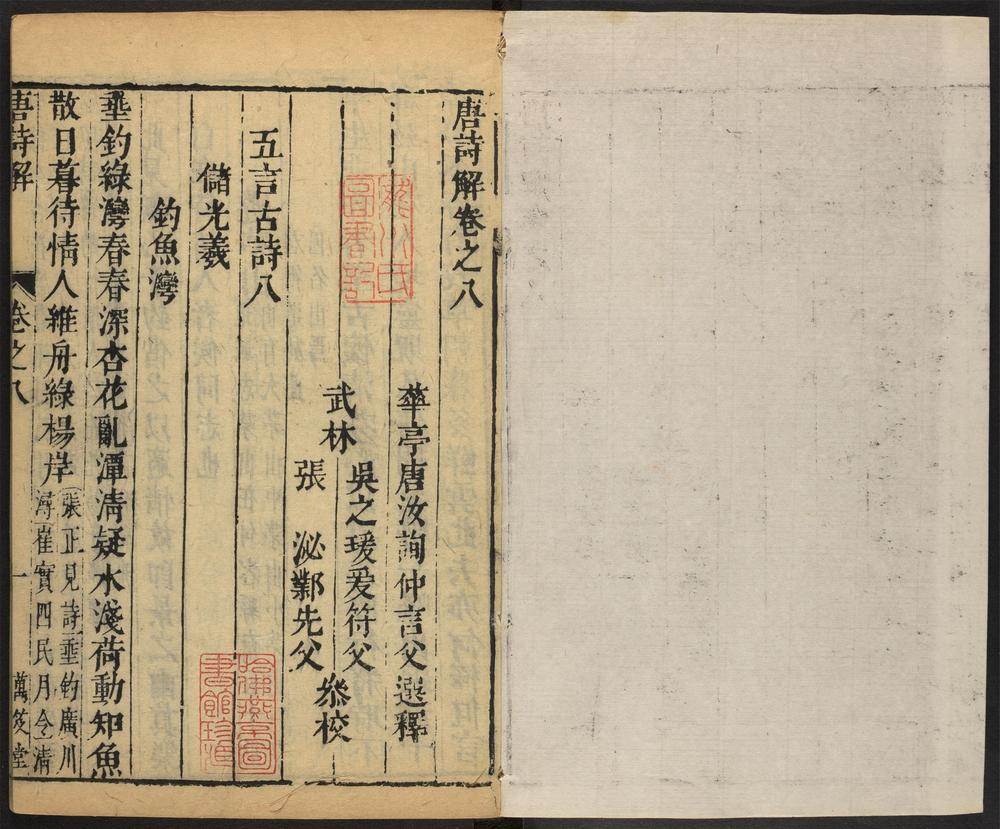 唐詩解卷之八
華亭唐汝詢仲言父選釋
武林
吳之瑗爰符父
張泌鄴先父
叅校
五言古詩八
儲光羲
釣魚灣
垂釣綠灣春春深杏花亂潭清疑水淺荷動知魚
散日暮待情人維舟綠楊岸
張正見詩垂釣廣川
潯崔寔四民月令清
唐詩解
卷之八
一
萬笈堂
哈佛燕京圖書館珍藏